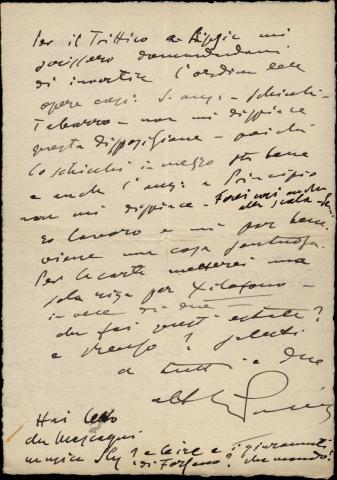 Per il Trittico a Lipsia mi
scrissero domandandomi
di invertire l'ordine delle
opere così: S. Ang. - Schicchi -
Tabarro - non mi dispiace
questa disposizione - poiché
lo Schicchi in mezzo sta bene
e anche l'Ang. a Principio
non mi dispiace - Farei così anche
alla Scala -
lavoro e mi par bene
viene una cosa
Per le carte metterei una
sola riga per Xilofono -
invece di due
che fai quest'estate?
e Renzo? saluti
a tutti e due
Hai letto
di Mascagni
musica e i giuramenti
di Forzano? che mondo!